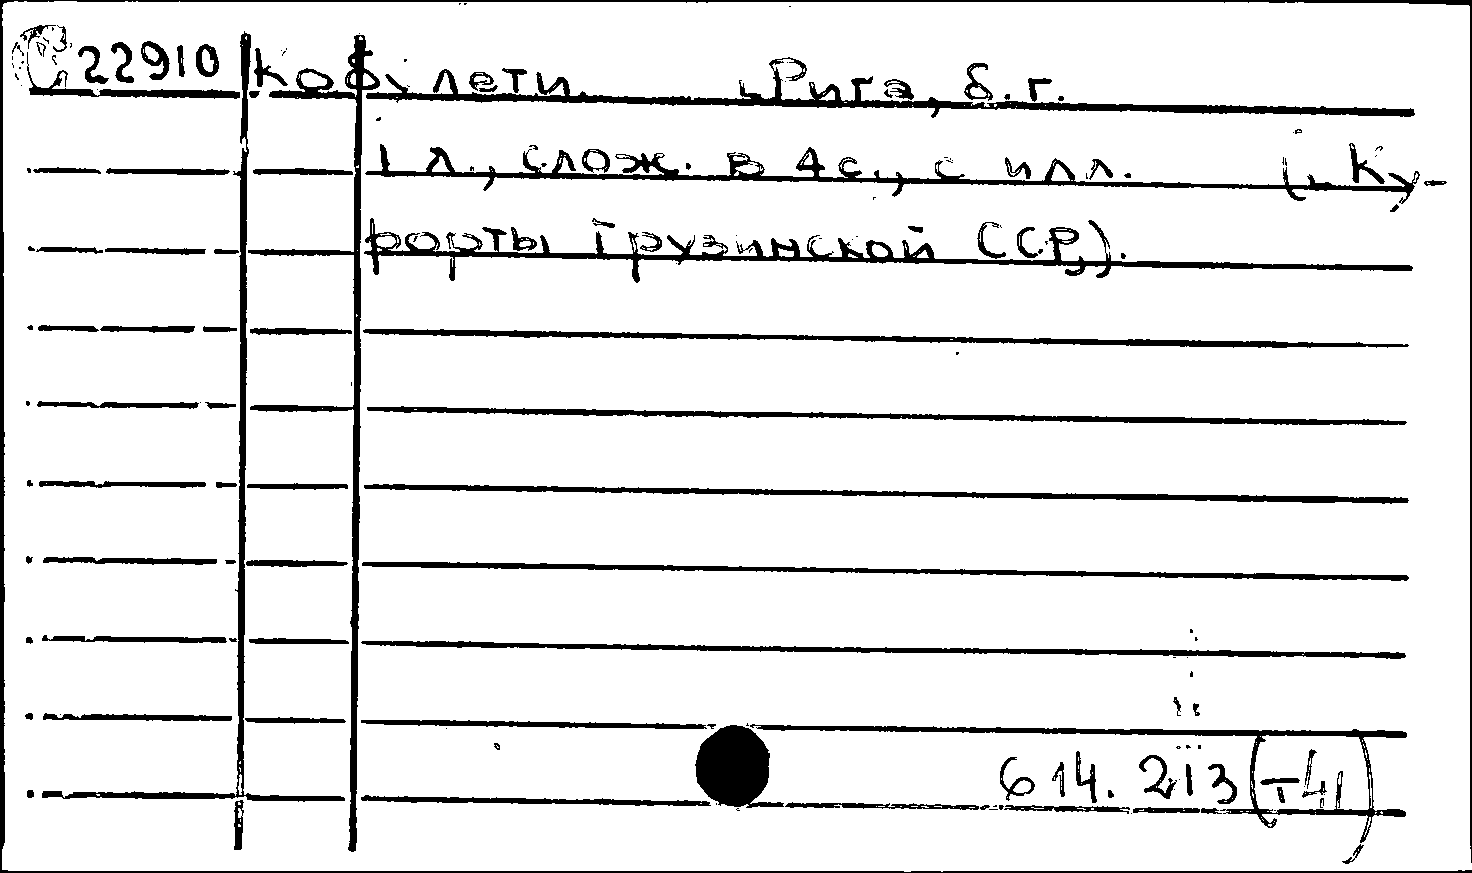 C 22910 Кобулети. „Рига, б.г.
1 л., слож. в 4 с., с илл. („Ку-
рорты Грузинской ССР„).
614.213(-41)